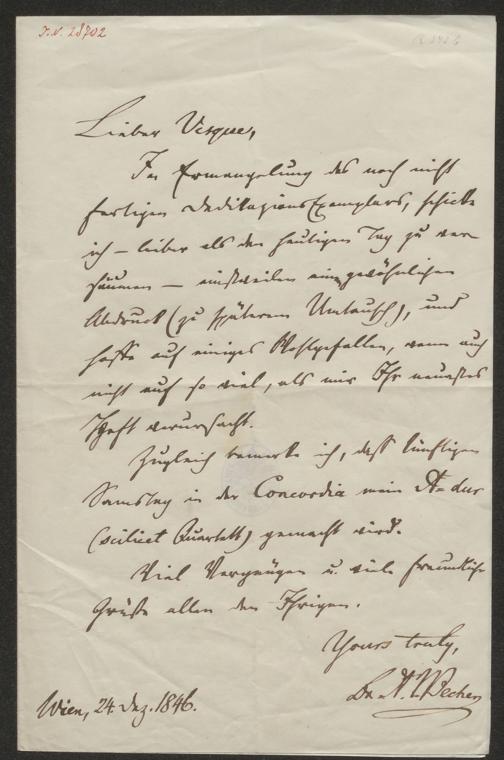 I.N. 28702
Lieber Vesque,
In Ermangelung des noch nicht
fertigen Dedikazions Exemplars, schicke
ich – lieber als den heutigen Tag zu ver-
säumen – einstweilen einen gewöhnlichen
Abdruck (zu späterem Umtausch), und
hoffe auf einiges Wohlgefallen, wenn auch
nicht auf so viel, als mir Ihr neuestes
Heft verursacht.
Zugleich bemerke ich, daß künftigen
Samstag in der Concordia mein A-dur
(scilicet Quartett) gemacht wird.
Viel Vergnügen u. viele freundliche
Grüße allen den Ihrigen.
Yours truly,
Dr. A. J. Becher
Wien, 24. Dez. 1846.